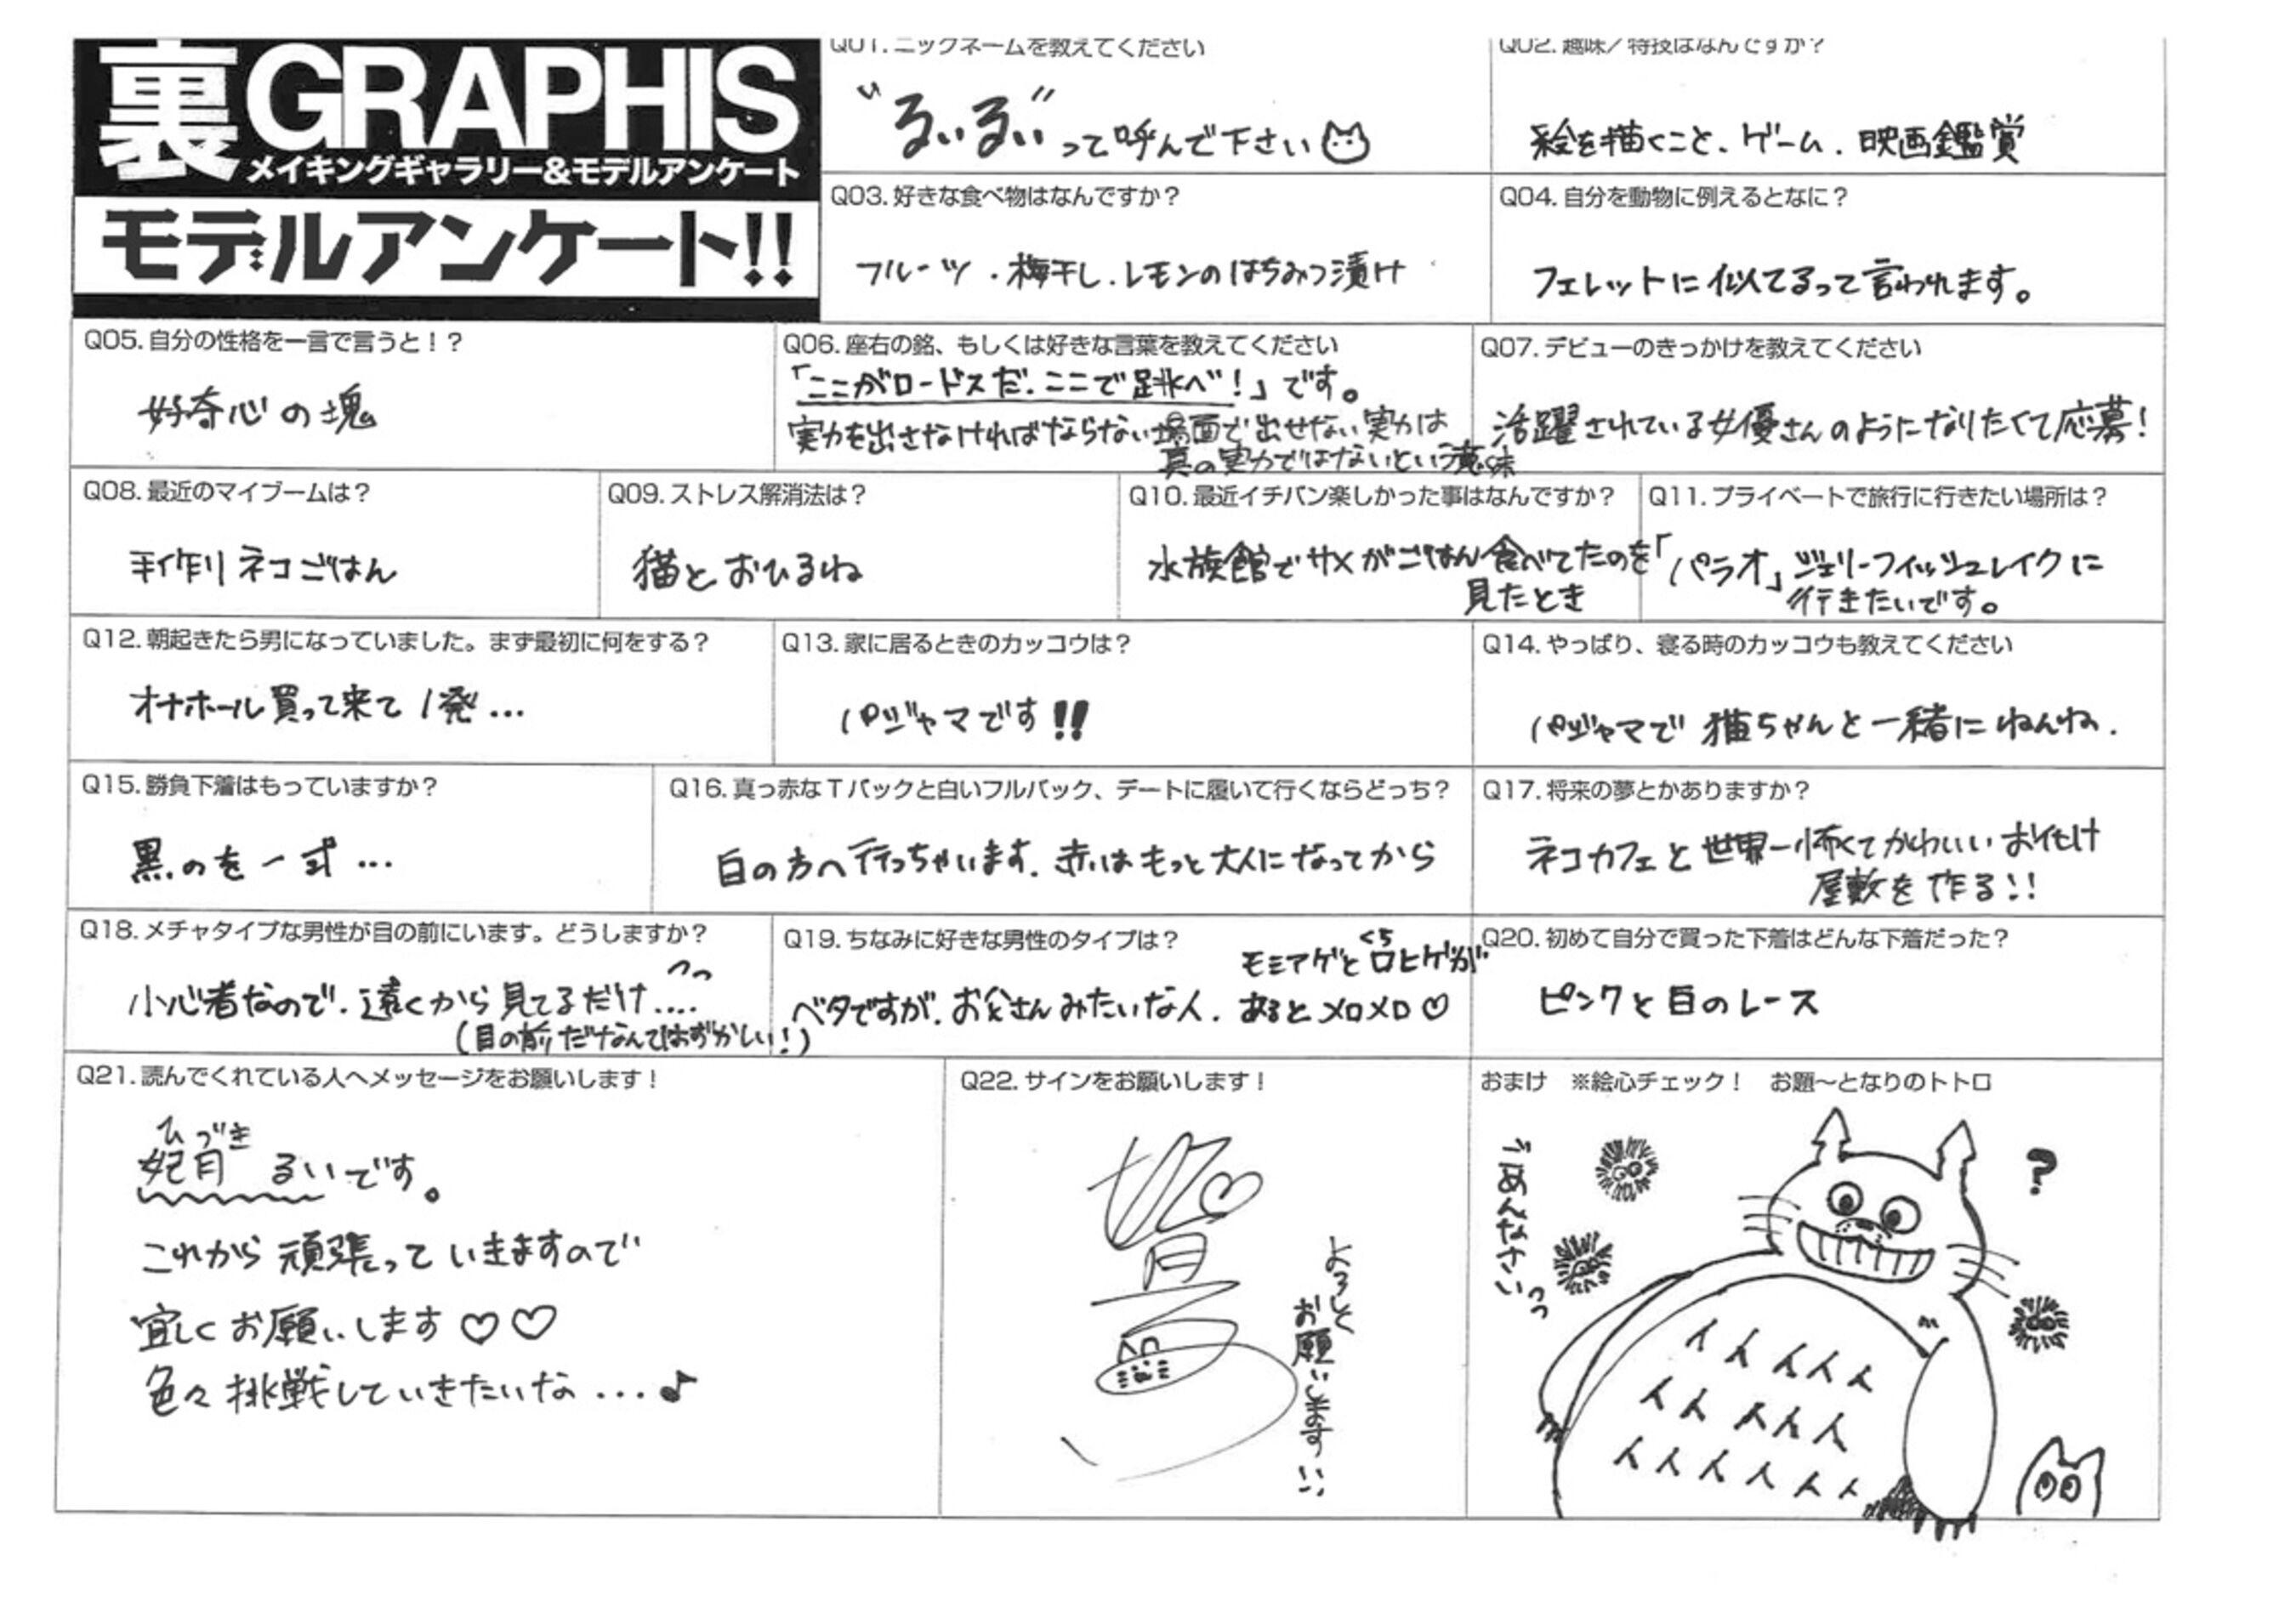 裏GRAPHIS
メイキングギャラリー&モデルアンケート
モデルアンケート!!
Q01. ニックネームを教えてください
"るいるい"って呼んで下さい
Q02. 趣味／特技はなんですか？
絵を描くこと、ゲーム、映画鑑賞
Q03. 好きな食べ物はなんですか？
フルーツ・梅干し・レモンのはちみつ漬け
Q04. 自分を動物に例えるとなに？
フェレットに似てるって言われます。
Q05. 自分の性格を一言で言うと！？
好奇心の塊
Q06. 座右の銘、もしくは好きな言葉を教えてください
「ここがロードスだ、ここで跳べ！」です。
実力を出さなければならない場面で出せない実力は
真の実力ではないという意味
Q07. デビューのきっかけを教えてください
活躍されている女優さんのようになりたくて応募！
Q08. 最近のマイブームは？
手作りネコごはん
Q09. ストレス解消法は？
猫とおひるね
Q10. 最近イチバン楽しかった事はなんですか？
水族館でサメがごはん食べてたのを
見たとき
Q11. プライベートで旅行に行きたい場所は？
「パラオ」ジェリーフィッシュレイクに
行きたいです。
Q12. 朝起きたら男になっていました。まず最初に何をする？
オナホール買って来て1発…
Q13. 家に居るときのカッコウは？
パジャマです!!
Q14. やっぱり、寝る時のカッコウも教えてください
パジャマで猫ちゃんと一緒にねんね.
Q15. 勝負下着はもっていますか？
黒のを一式…
Q16. 真っ赤なTバックと白いフルバック、デートに履いて行くならどっち？
白の方へ行っちゃいます. 赤はもっと大人になってから
Q17. 将来の夢とかありますか？
ネコカフェと世界一怖くてかわいいお化け
屋敷を作る!!
Q18. メチャタイプな男性が目の前にいます。どうしますか？
小心者なので、遠くから見てるだけ....っっ
(目の前だなんてはずかしい！)
Q19. ちなみに好きな男性のタイプは？
ベタですが、お父さんみたいな人. モミアゲと口ヒゲが
くち
あるとメロメロ♡
Q20. 初めて自分で買った下着はどんな下着だった？
ピンクと白のレース
Q21. 読んでくれている人へメッセージをお願いします！
ひづき
妃月 るいです。
これから頑張っていきますので
宜しくお願いします♡♡
色々挑戦していきたいな...♪
Q22. サインをお願いします！
よろしく
お願いします!!
おまけ ※絵心チェック！ お題～となりのトトロ
ごめんなさいっっ
?